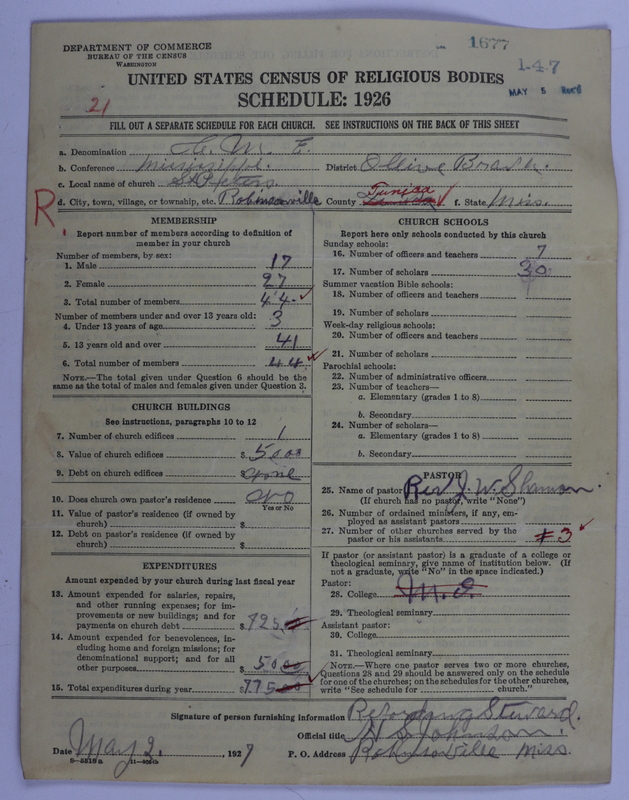 DEPARTMENT OF COMMERCE
BUREAU OF THE CENSUS
WASHINGTON
1677
1-47
MAY 5 Rec'd
UNITED STATES CENSUS OF RELIGIOUS BODIES
SCHEDULE: 1926
21
FILL OUT A SEPARATE SCHEDULE FOR EACH CHURCH. SEE INSTRUCTIONS ON THE BACK OF THIS SHEET
a. Denomination C. M. E.
b. Conference Mississippi. District Ollive Branch.
c. Local name of church St Peters.
R.
d. City, town, village, or township, etc. Robinsonville County Tunica f. State Miss.
MEMBERSHIP
Report number of members according to definition of
member in your church
Number of members, by sex:
1. Male 17
2. Female 27
3. Total number of members 44
Number of members under and over 13 years old:
4. Under 13 years of age 3
5. 13 years old and over 41
6. Total number of members 44
NOTE.—The total given under Question 6 should be the
same as the total of males and females given under Question 3.
CHURCH BUILDINGS
See instructions, paragraphs 10 to 12
7. Number of church edifices 1
8. Value of church edifices $ 5000
9. Debt on church edifices $ none
10. Does church own pastor's residence no
Yes or No
11. Value of pastor's residence (if owned by
church) $
12. Debt on pastor's residence (if owned by
church) $
EXPENDITURES
Amount expended by your church during last fiscal year
13. Amount expended for salaries, repairs,
and other running expenses; for im-
provements or new buildings; and for
payments on church debt $ 725.00
14. Amount expended for benevolences, in-
cluding home and foreign missions; for
denominational support; and for all
other purposes $ 5000
15. Total expenditures during year $ 775.00
CHURCH SCHOOLS
Report here only schools conducted by this church
Sunday schools:
16. Number of officers and teachers 7
17. Number of scholars 30
Summer vacation Bible schools:
18. Number of officers and teachers
19. Number of scholars
Week-day religious schools:
20. Number of officers and teachers
21. Number of scholars
Parochial schools:
22. Number of administrative officers
23. Number of teachers—
a. Elementary (grades 1 to 8)
b. Secondary
24. Number of scholars—
a. Elementary (grades 1 to 8)
b. Secondary
PASTOR
25. Name of pastor Rev J. W. Shannon.
(If church has no pastor, write "None")
26. Number of ordained ministers, if any, em-
ployed as assistant pastors
27. Number of other churches served by the
pastor or his assistants 3
If pastor (or assistant pastor) is a graduate of a college or
theological seminary, give name of institution below. (If
not a graduate, write "No" in the space indicated.)
Pastor:
28. College
29. Theological seminary
Assistant pastor:
30. College
31. Theological seminary
NOTE.—Where one pastor serves two or more churches,
Questions 28 and 29 should be answered only on the schedule
for one of the churches; on the schedules for the other churches,
write "See schedule for church."
Signature of person furnishing information Recording Steward.
Official title Johnson.
Date May 2, 1927 P. O. Address Robinsonville Miss.